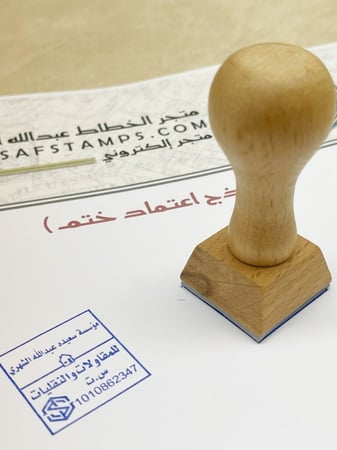 متجر الخطاط عبدالله ا
SAFSTAMPS.COM
متجر إلكتروني
ذج اعتماد ختم )
مؤسسة سعيده عبدالله الشهري
للمقاولات والنقليات
س.ت
1010862347